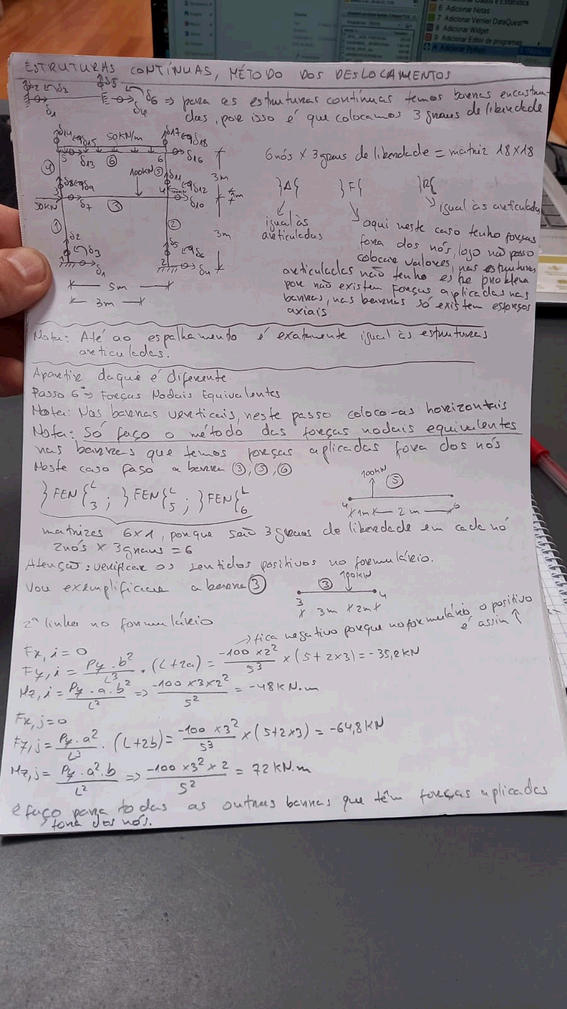 ESTRUTURAS CONTÍNUAS, MÉTODO DOS DESLOCAMENTOS
=> para as estruturas contínuas temos barras encastra-
das, por isso é que colocamos 3 graus de liberdade
50KN/m
6 nós X 3 graus de liberdade = matriz 18X18
100KN
30KN
3m
3m
5m
3m
}Δ{ }F{ }R{
igual às articuladas
igual às
articuladas
aqui neste caso tenho forças
fora dos nós, logo não posso
colocar valores, nas estruturas
articuladas não tenho este problema
por não existem forças aplicadas nas
barras, nas barras só existem esforços
axiais
Nota: Até ao espalhamento é exatamente igual às estruturas
articuladas.
Apartir daqui é diferente
Passo 6º=> Forças Nodais Equivalentes
Nota: Nas barras verticais, neste passo coloco-as horizontais
Nota: Só faço o método das forças nodais equivalentes
nas barras que temos forças aplicadas fora dos nós
Neste caso faço a barra ③, ⑤, ⑥
}FEN{ᴸ₃ ; }FEN{ᴸ₅ ; }FEN{ᴸ₆
100KN
⑤
1m 2m
matrizes 6X1, porque são 3 graus de liberdade em cada nó
2nós X 3graus = 6
Atenção: verificar os sentidos positivos no formulário.
Vou exemplificar a barra ③
③ 100KN
3 4
3m 2m
2ª linha no formulário
-> fica negativo porque no formulário o positivo
é assim ↑
Fx,i = 0
Fy,i = Py.b²/L³ . (L+2a) = -100x2²/5³ x (5+2x3) = -35,2KN
Mz,i = Py.a.b²/L² => -100x3x2²/5² = -48KN.m
Fx,j=0
Fy,j = Py.a²/L³ . (L+2b) = -100x3²/5³ x (5+2x3) = -64,8KN
Mz,j = Py.a².b/L² => -100x3²x2/5² = 72KN.m
e faço para todas as outras barras que têm forças aplicadas
fora dos nós.